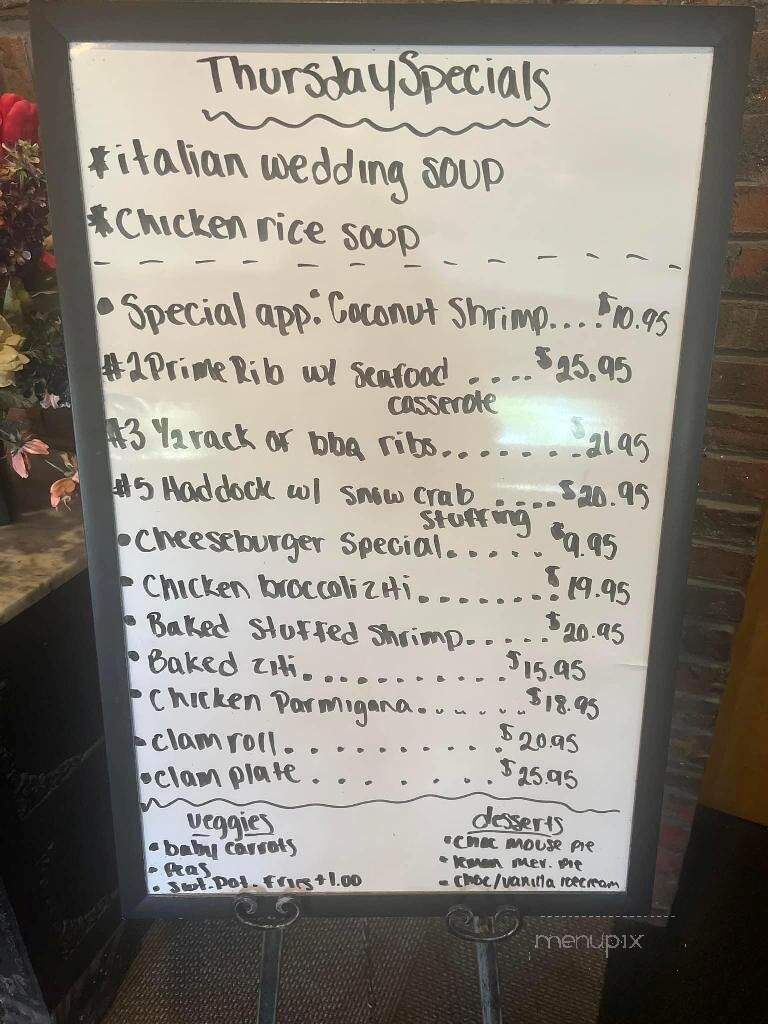 Thursday Specials
*italian wedding soup
*Chicken rice soup
• Special app: Coconut Shrimp.... $10.95
#2 Prime Rib w/ Seafood .... $25.95
casserote
#3 1/2 rack of bbq ribs....... $21.95
#5 Haddock w/ snow crab .... $20.95
stuffing
• Cheeseburger Special..... $9.95
• Chicken broccoli ziti........ $19.95
• Baked Stuffed Shrimp...... $20.95
• Baked ziti........... $15.95
• Chicken Parmigana....... $18.95
• clam roll........... $20.95
• clam plate........ $25.95
veggies
• baby carrots
• Peas
• Swt. Pot. Fries +1.00
desserts
• choc mouse pie
• lemon mer. pie
• choc/vanilla icecream
menupix